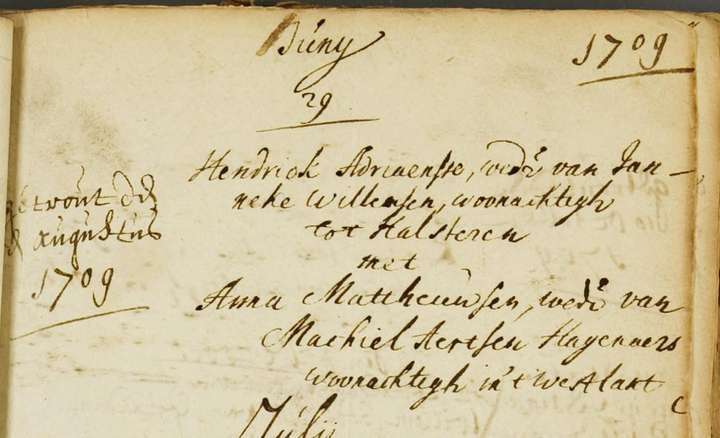 Juny
1709
29
Hendrick Adriaensse, wedr van Jan-
neke Willemsen, woonachtigh
tot Halsteren
met
Anna Mattheeussen, wede van
Machiel Aertsen Hagenaers
woonachtigh in't westlant
getrout den
Augustus
1709
July